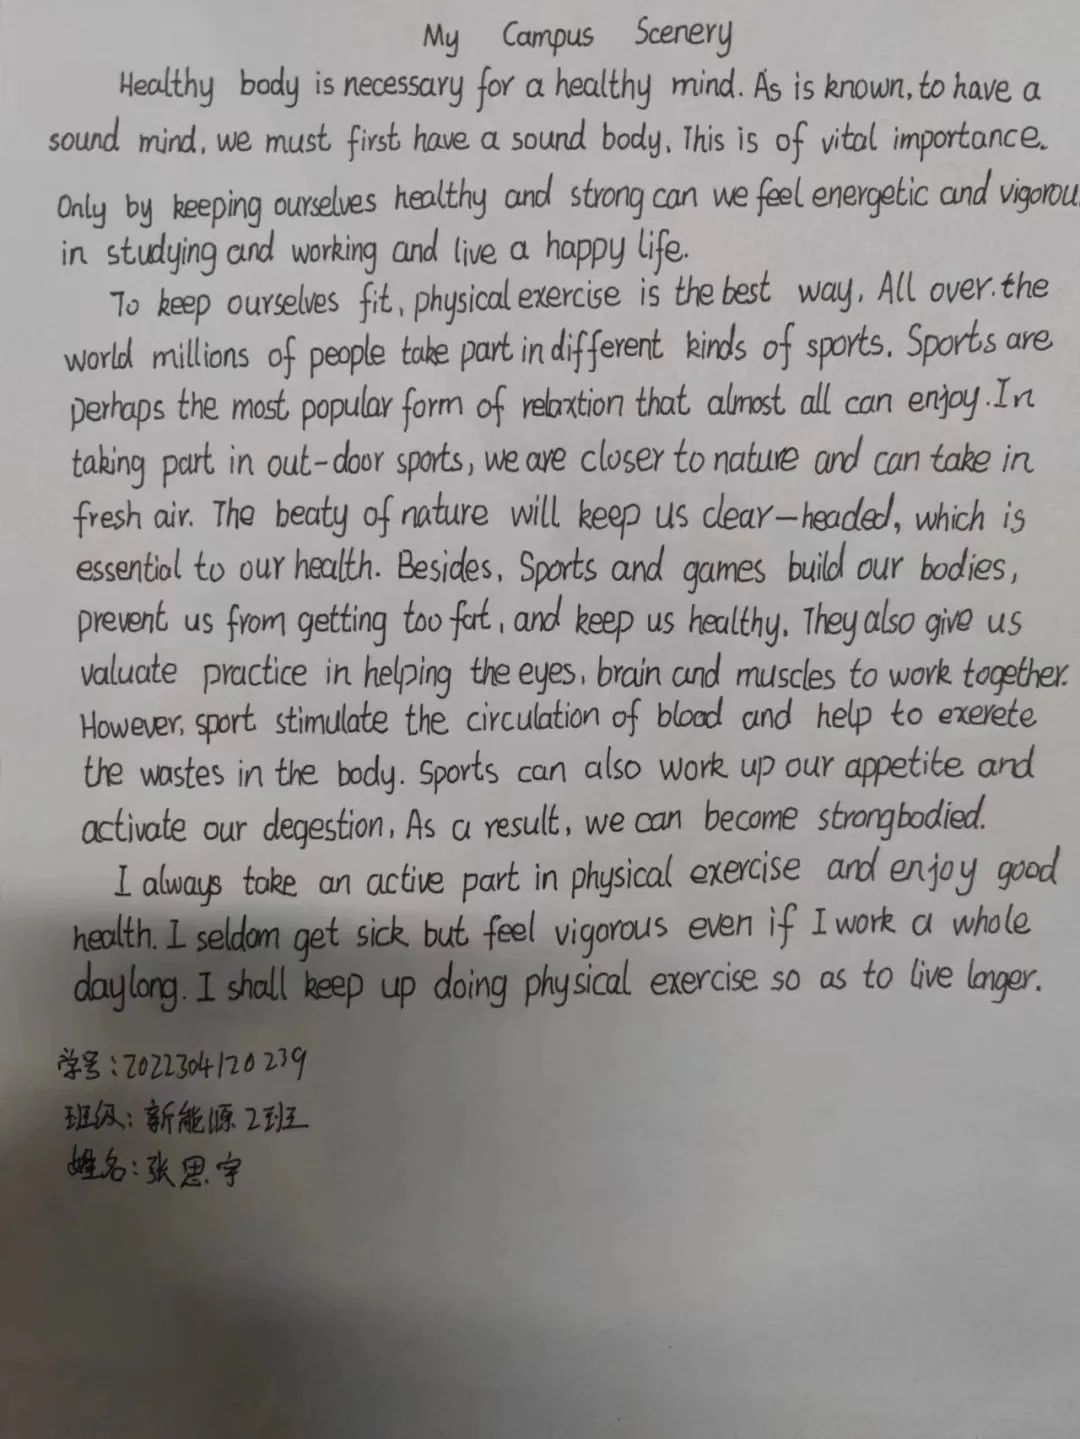 My Campus Scenery
Healthy body is necessary for a healthy mind. As is known, to have a
sound mind, we must first have a sound body. This is of vital importance.
Only by keeping ourselves healthy and strong can we feel energetic and vigorou
in studying and working and live a happy life.
To keep ourselves fit, physical exercise is the best way. All over the
world millions of people take part in different kinds of sports. Sports are
perhaps the most popular form of relaxtion that almost all can enjoy. In
taking part in out-door sports, we are closer to nature and can take in
fresh air. The beaty of nature will keep us clear-headed, which is
essential to our health. Besides, Sports and games build our bodies,
prevent us from getting too fat, and keep us healthy. They also give us
valuate practice in helping the eyes, brain and muscles to work together.
However, sport stimulate the circulation of blood and help to exerete
the wastes in the body. Sports can also work up our appetite and
activate our degestion, As a result, we can become strongbodied.
I always take an active part in physical exercise and enjoy good
health. I seldom get sick but feel vigorous even if I work a whole
daylong. I shall keep up doing physical exercise so as to live longer.
学号:2022304120239
班级:新能源2班
姓名:张思宇